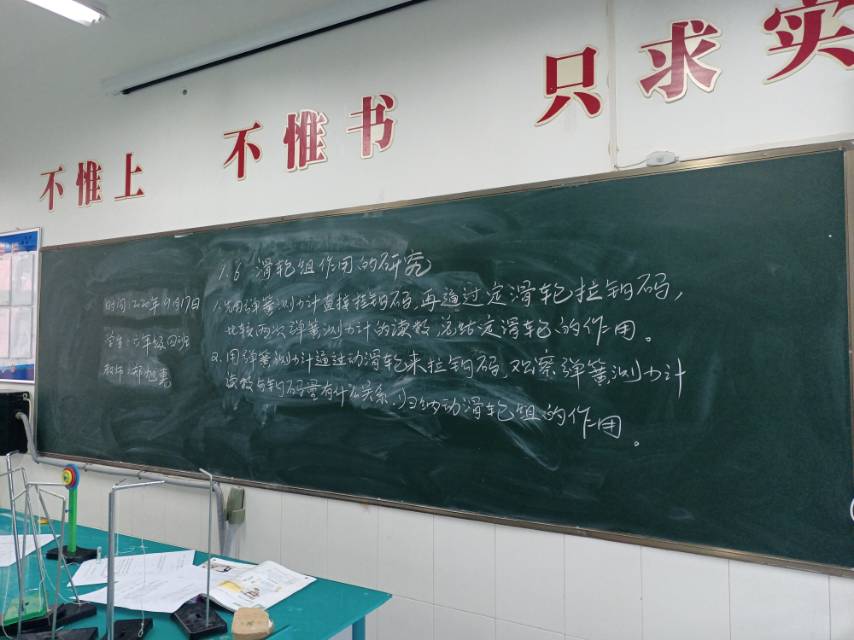 不惟上 不惟书 只求实
1.6 滑轮组作用的研究
时间:2020年9月17日
学生:六年级四班
教师:
1.先用弹簧测力计直接拉钩码,再通过定滑轮拉钩码,
比较两次弹簧测力计的读数 总结定滑轮的作用。
2.用弹簧测力计通过动滑轮来拉钩码,观察弹簧测力计
读数与钩码重有什么关系,归纳动滑轮组的作用。